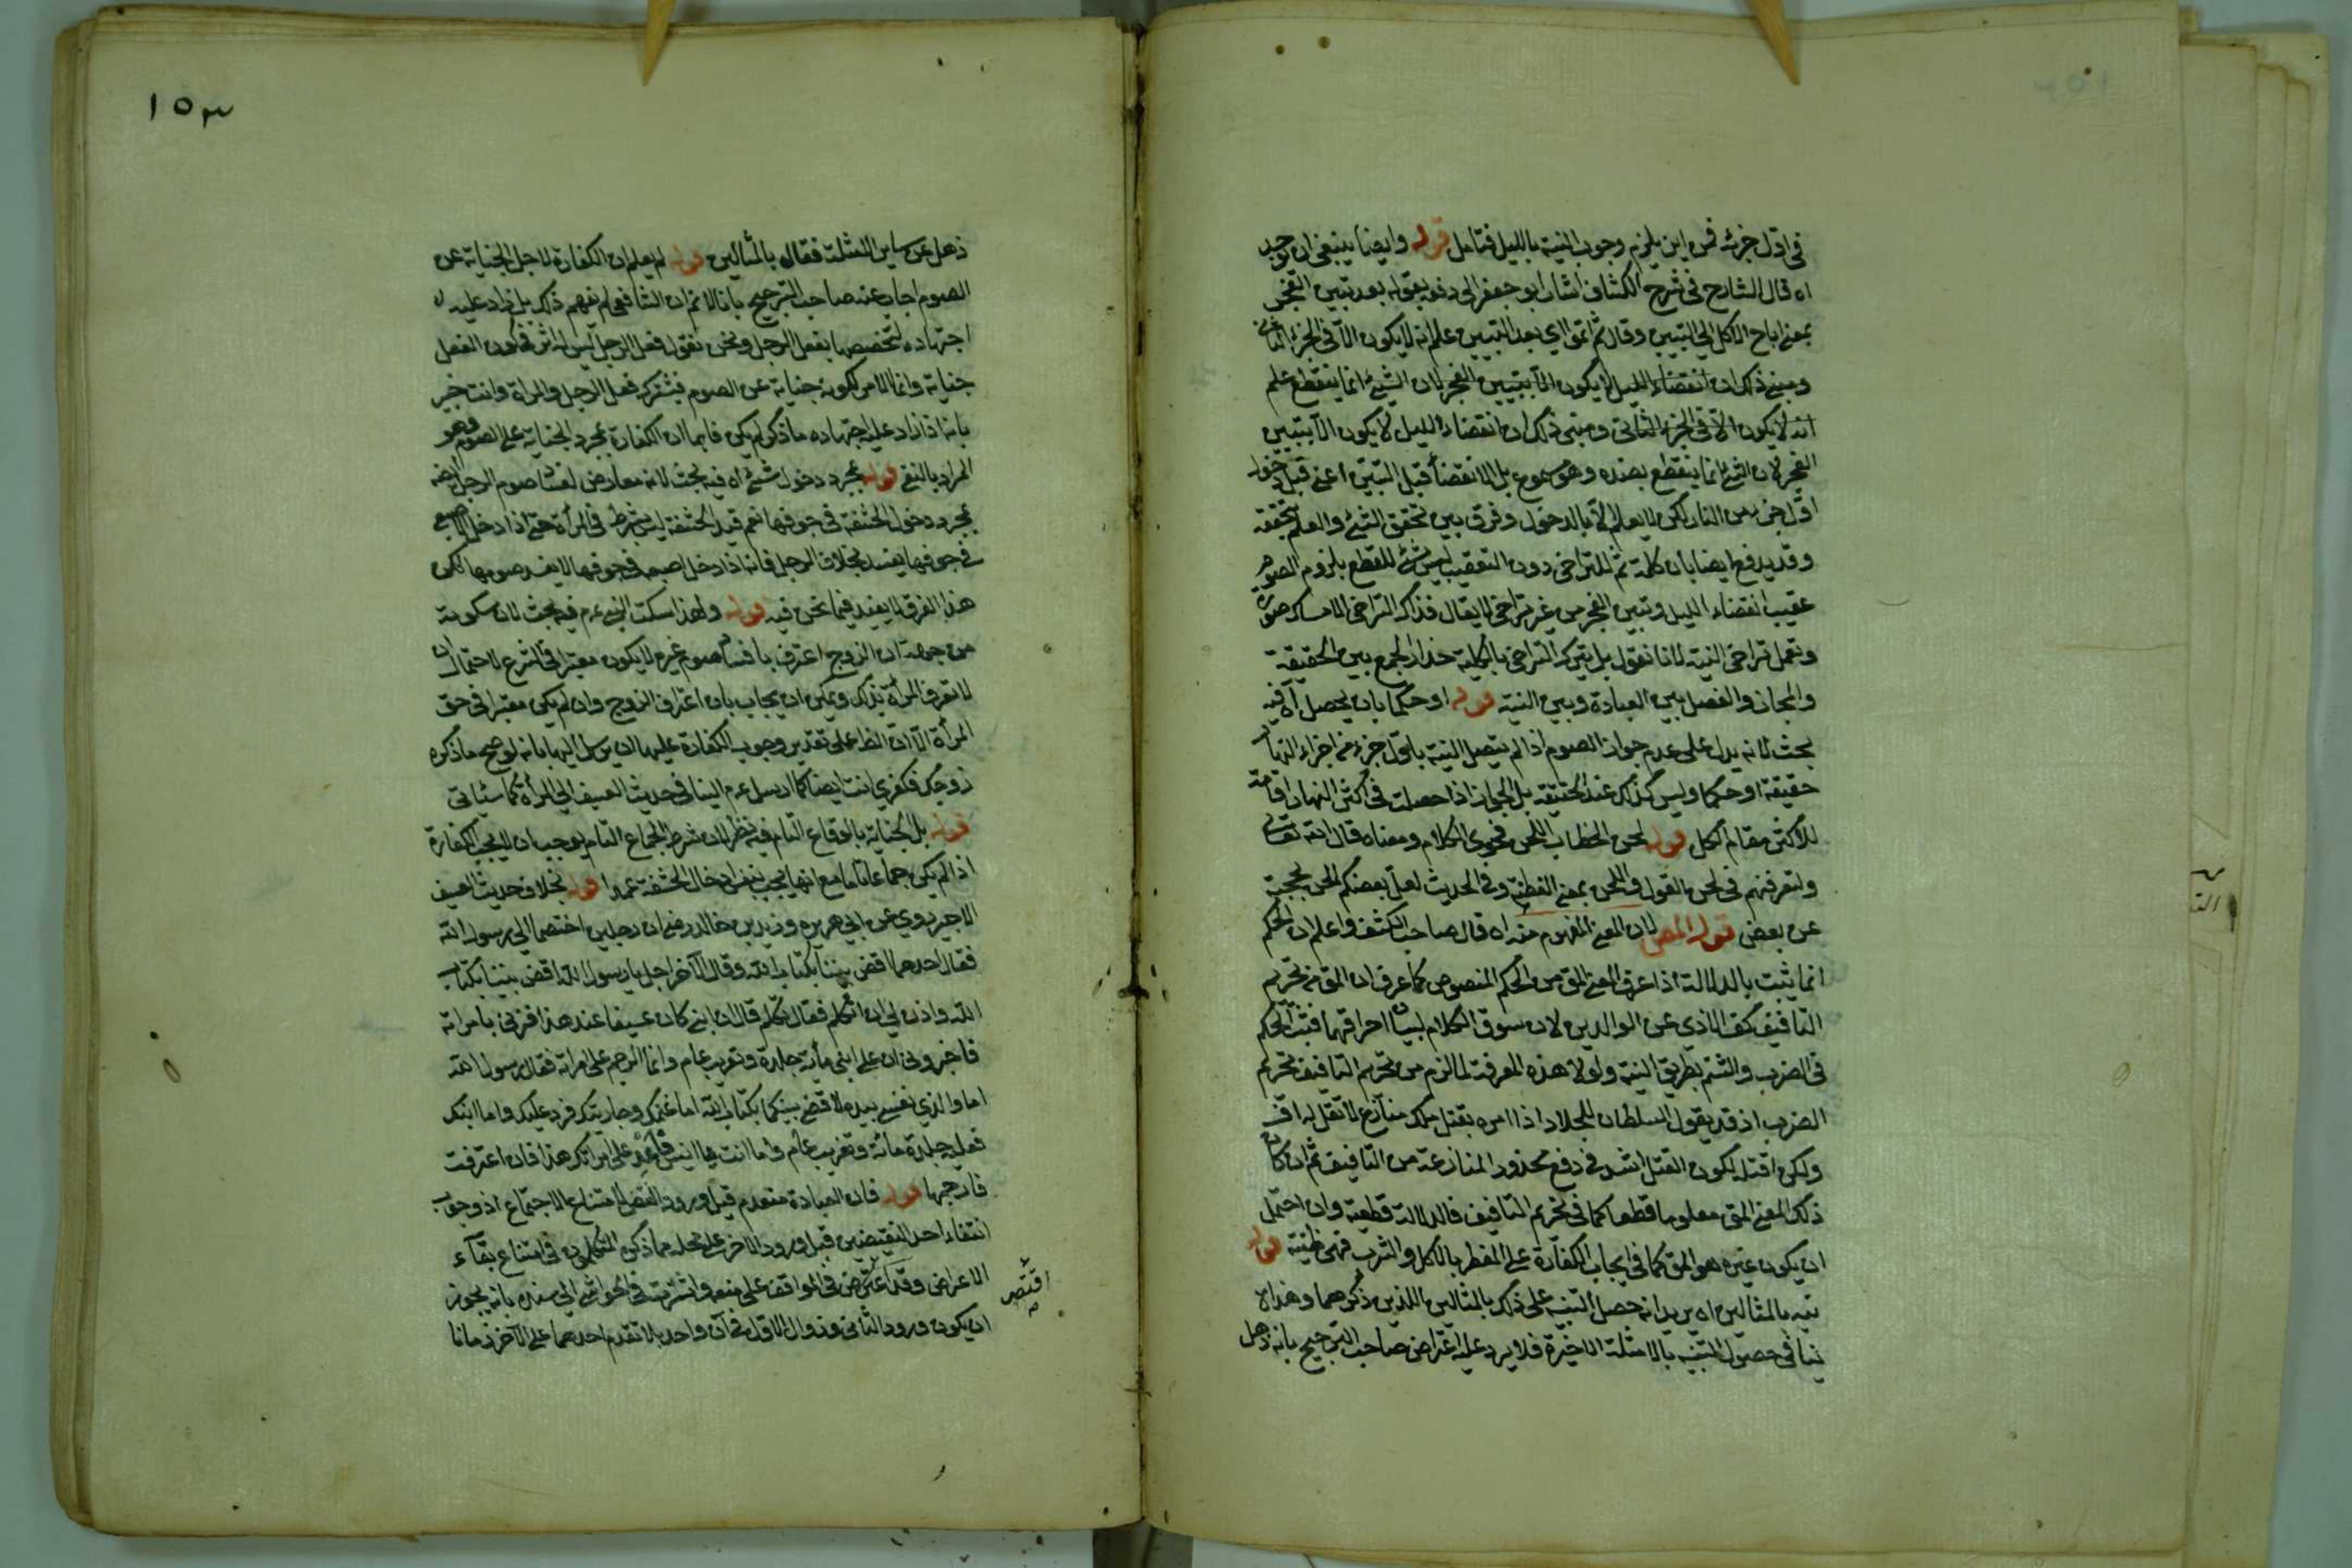 في اول جزئه فمن اين يلزم وجوب النية بالليل فتامل قوله وايضا ينبغي ان يوجد
اه قال الشارح في شرح الكشاف اشار ابو جعفر الى دفعه بقوله بعد تبين الفجر
بمعنى اباح الاكل الى التبيين وقال ثم اتموا اي بعد التبيين علم انه لا يكون الا في الجزء الثاني
ومبنى ذلك ان انقضاء الليل لا يكون الا بتبيين الفجر لان الشيء انما ينقطع علم
انه لا يكون الا في الجزء الثاني ومبنى ذلك ان انقضاء الليل لا يكون الا بتبيين
الفجر لان الشيء انما ينقطع بضده وهو ممنوع بل الانقضاء قبل التبين اعني قبل دخول
اول جزء من النهار لكن لا يعلم الا بالدخول وفرق بين تحقق الشيء والعلم بتحققه
وقد يدفع ايضا بان كلمة ثم للتراخي دون التعقيب ليس بشيء للقطع بلزوم الصوم
عقيب انقضاء الليل وتبين الفجر من غير تراخي لا يقال فذاك التراخي الامساك صونا
ونعمل تراخي النية لانا نقول بل يترك التراخي بالكلية حذار الجمع بين الحقيقة
والمجاز والفصل بين العبادة وبين النية قوله او حكما بان يحصل اه فيه
بحث لانه يدل على عدم جواز الصوم اذا لم يتصل النية باول جزء من اجزاء النهار
حقيقة او حكما وليس كذلك عند الحنفية بل الجواز اذا حصلت في اكثر النهار اقامة
للاكثر مقام الكل قوله لحن الخطاب اللحن فحوى الكلام ومعناه قال الله تعالى
ولتعرفنهم في لحن القول واللحن بمعنى الفطنة وفي الحديث لعل بعضكم الحن بحجته
عن بعض قوله المص لان المعنى المفهوم منه اه قال صاحب الكشف واعلم ان الحكم
انما يثبت بالدلالة اذا عرف المعنى المق من الحكم المنصوص كما عرف ان المق من تحريم
التافيف كف الاذى عن الوالدين لان سوق الكلام لبيان احترامهما فيثبت الحكم
في الضرب والشتم بطريق البينة ولولا هذه المعرفة لما لزم من تحريم التافيف تحريم
الضرب اذ قد يقول السلطان للجلاد اذا امره بقتل ملك منازع لا تقل له اف
ولكن اقتله لكون القتل اشد في دفع محذور المنازعة من التافيف ثم ان كان
ذلك المعنى المق معلوما قطعا كما في تحريم التافيف فالدلالة قطعية وان احتمل
ان يكون غيره هو المق كما في ايجاب الكفارة على المفطر بالاكل والشرب فهي ظنية قوله
نبه بالمثالين اه يريد انه حصل التنبيه على ذلك بالمثالين اللذين ذكرهما وهذا لا
ينافي حصول التنبيه بالامثلة الاخيرة فلا يرد عليه اعتراض صاحب الترجيح بانه ذهل
١٥٣
ذهل عن ساير الامثلة فقال بالمثالين قوله لم يعلم ان الكفارة لاجل الجناية عن
الصوم اجاب عنه صاحب الترجيح بانا لانم ان الشافعي لم يفهم ذلك بل زاد عليه
اجتهاده لتخصيصها بفعل الرجل ونحن نقول فعل الرجل ليس له اثر في كون الفعل
جناية وانما الامر لكونه جناية عن الصوم فيشترك فعل الرجل والمراة وانت خبير
بانه اذا زاد عليه اجتهاده ما ذكر لم يكن فاهما ان الكفارة بمجرد الجناية على الصوم وهو
المراد بالنفي قوله بمجرد دخول شيء اه فيه بحث لانه معارض لفساد صوم الرجل ايضه
بمجرد دخول الحشفة في جوفها نعم قيد الحشفة ليس بشرط في المرأة حتى اذا دخل الاصبع
في جوفها يفسد بخلاف الرجل فانه اذا دخل اصبعه في جوفها لا يفسد صومها لكن
هذا الفرق لا يفيد فيما نحن فيه قوله ولهذا سكت النبي ء م فيه بحث لان سكوته
من جهة ان الزوج اعترف بافساد صوم غيره لا يكون معتبرا في الشرع لاحتمال ان
لا تعرف المرأة بذلك ويمكن ان يجاب بان اعتراف الزوج وان لم يكن معتبرا في حق
المرأة الا ان الظ على تقدير وجوب الكفارة عليها ان يرسل اليها بانه لو صح ما ذكره
زوجك فكفري انت ايضا كما ارسل ء م النينا في حديث العسيف الى المرأة كما سيأتي
قوله بل الجناية بالوقاع التام فيه نظر لان شرط الجماع التام يوجب ان لا يجب الكفارة
اذا لم يكن جماعا تاما مع انها يجب بنفس ادخال الحشفة عمدا قوله بخلاف حديث العسيف
الاجير روي عن ابي هريره وزيد بن خالد رض ان رجلين اختصما الى رسول الله
فقال احدهما اقض بيننا بكتاب الله وقال الآخر اجل يا رسول الله اقض بيننا بكتاب
الله واذن لي ان اتكلم فقال تكلم قال ان ابني كان عسيفا عند هذا فزنى بامراته
فاخبروني ان على ابني مأية جلدة وتغريب عام وانما الرجم على امراته فقال رسول الله
اما والذي نفسي بيده لاقضي بينكما بكتاب الله اما غنمك وجاريتك فرد عليك واما ابنك
فعليه جلدة مائة وتغريب عام واما انت يا انيس فاغد على امراة هذا فان اعترفت
فارجمها قوله فان العبادة منعدم قبل ورود النقض لامتناع الاجتماع اذ وجوب
انتفاء احد النقيضين قبل ورود الاخر على محله مما ذكره المتكلمون في امتناع بقآء
الاعراض وقد اعترض في المواقف على منعه واشرت في الحواشي الى سنده بانه يجوز
ان يكون ورود الثاني وزوال الاول في آن واحد بلا تقدم احدهما على الآخر زمانا